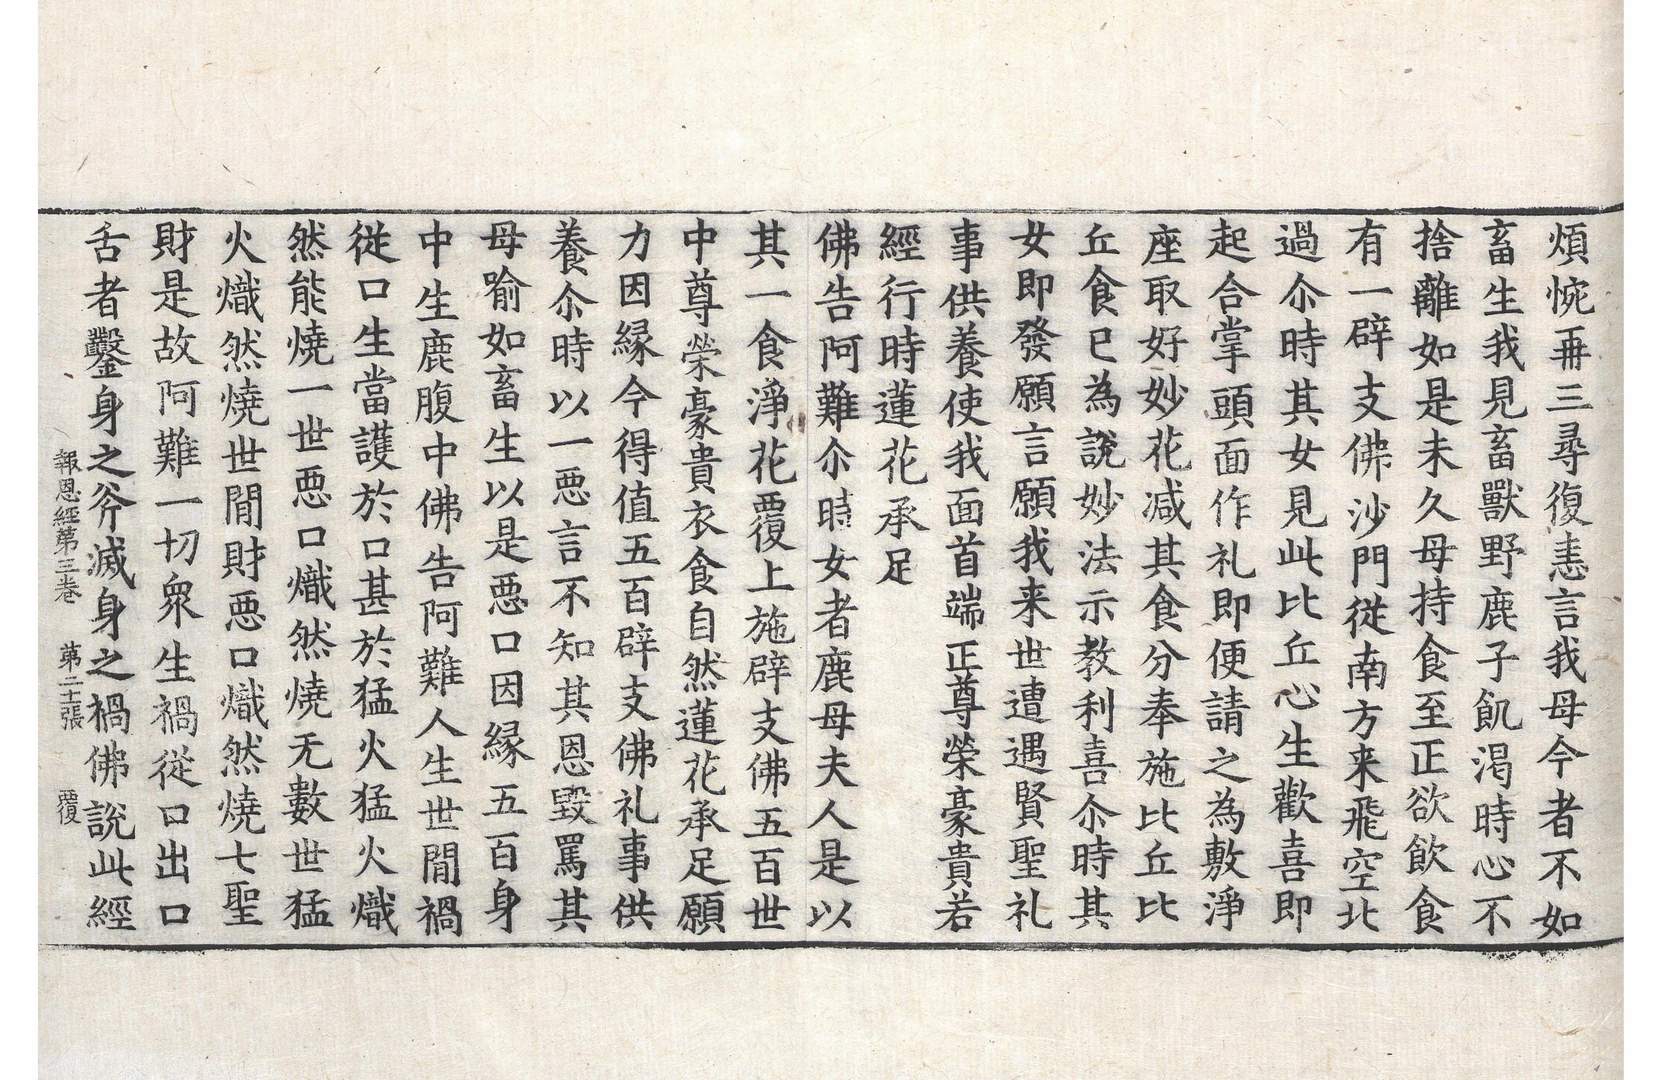 煩惋再三尋復恚言我母今者不如
畜生我見畜獸野鹿子飢渴時心不
捨離如是未久母持食至正欲飲食
有一辟支佛沙門從南方来飛空北
過尒時其女見此比丘心生歡喜即
起合掌頭面作礼即便請之為敷淨
座取好妙花減其食分奉施比丘比
丘食已為說妙法示教利喜尒時其
女即發願言願我来世遭遇賢聖礼
事供養使我面首端正尊榮豪貴若
經行時蓮花承足
佛告阿難尒時女者鹿母夫人是以
其一食淨花覆上施辟支佛五百世
中尊榮豪貴衣食自然蓮花承足願
力因緣今得值五百辟支佛礼事供
養尒時以一惡言不知其恩毀罵其
母喻如畜生以是惡口因緣五百身
中生鹿腹中佛告阿難人生世間禍
從口生當護於口甚於猛火猛火熾
然能燒一世惡口熾然燒无數世猛
火熾然燒世間財惡口熾然燒七聖
財是故阿難一切衆生禍從口出口
舌者鑿身之斧滅身之禍佛說此經
報恩經第三卷　第二十張　覆